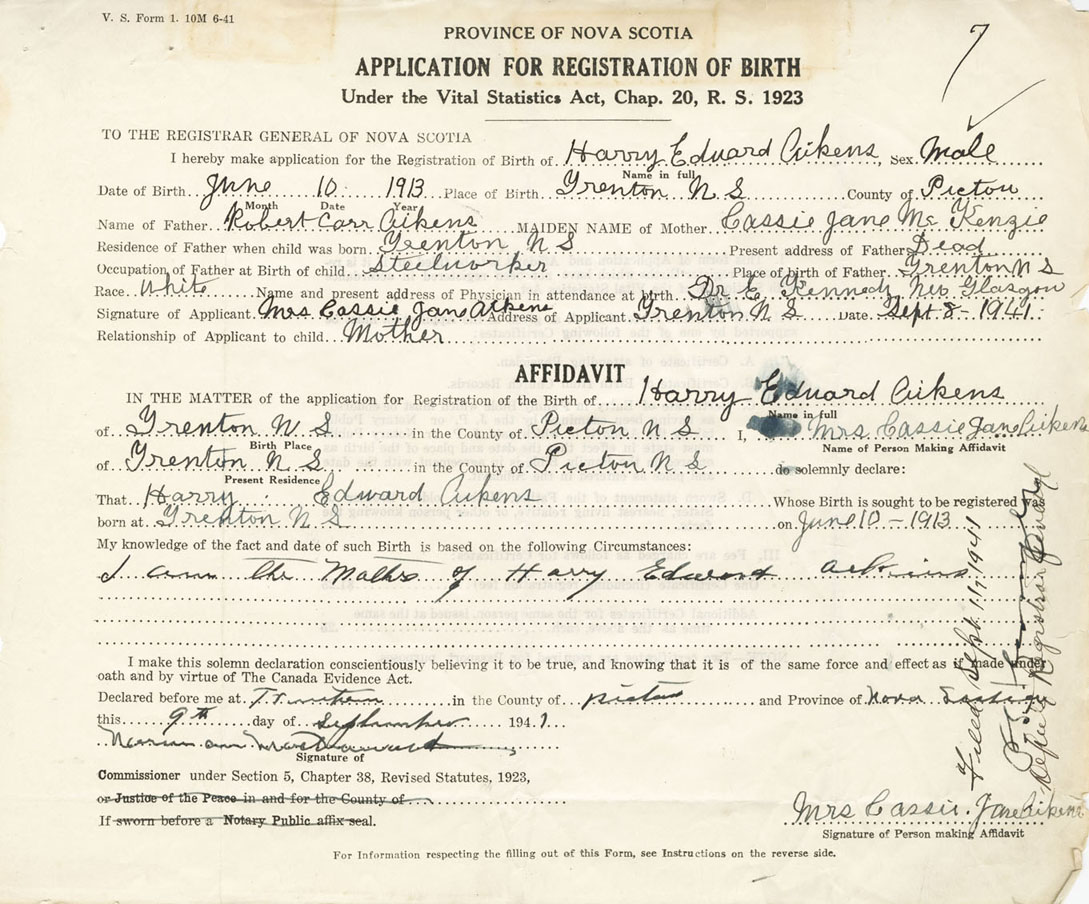 V. S. Form 1. 10M 6-41
7
PROVINCE OF NOVA SCOTIA
APPLICATION FOR REGISTRATION OF BIRTH
Under the Vital Statistics Act, Chap. 20, R. S. 1923
TO THE REGISTRAR GENERAL OF NOVA SCOTIA
I hereby make application for the Registration of Birth of Harry Edward Aikens, Sex Male
Name in full
Date of Birth June 10 1913 Place of Birth Trenton N S County of Picton
Month Date Year
Name of Father Robert Carr Aikens MAIDEN NAME of Mother Cassie Jane Mc Kenzie
Residence of Father when child was born Trenton N S Present address of Father Dead
Occupation of Father at Birth of child Steelworker Place of birth of Father Trenton N S
Race White Name and present address of Physician in attendance at birth Dr E Kennedy New Glasgow
Signature of Applicant Mrs Cassie Jane Aikens Address of Applicant Trenton N S Date Sept 8 - 1941
Relationship of Applicant to child Mother
AFFIDAVIT
IN THE MATTER of the application for Registration of the Birth of Harry Edward Aikens
Name in full
of Trenton N S in the County of Picton N S I, Mrs Cassie Jane Aikens
Birth Place Name of Person Making Affidavit
of Trenton N S in the County of Picton N S do solemnly declare:
Present Residence
That Harry Edward Aikens Whose Birth is sought to be registered was
born at Trenton N S on June 10 - 1913
My knowledge of the fact and date of such Birth is based on the following Circumstances:
I am the Mother of Harry Edward Aikens
I make this solemn declaration conscientiously believing it to be true, and knowing that it is of the same force and effect as if made under
oath and by virtue of The Canada Evidence Act.
Declared before me at Trenton in the County of Picton and Province of Nova Scotia
this 9th day of September 1941
Signature of
Commissioner under Section 5, Chapter 38, Revised Statutes, 1923,
or Justice of the Peace in and for the County of
If sworn before a Notary Public affix seal.
Mrs Cassie Jane Aikens
Signature of Person making Affidavit
For Information respecting the filling out of this Form, see Instructions on the reverse side.
Filed Sept. 17, 1941
Deputy Registrar General